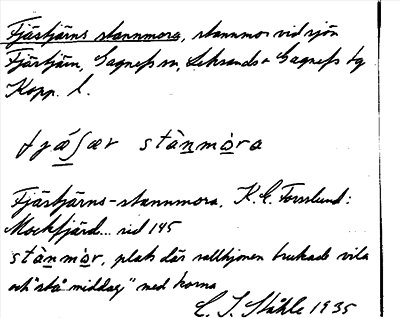 Fjärtjärns stannmora, stannmor vid sjön
Fjärtjärn, Gagnefs sn, Leksands o Gagnefs tg
Kopp. l.
stànmòra
Fjärtjärns-stannmora, K.E. Forsslund:
Mockfjärd... sid 145
stànmòr, plats där vallhjonen brukade vila
och "stå middag" med korna
C. I. Ståhle 1935